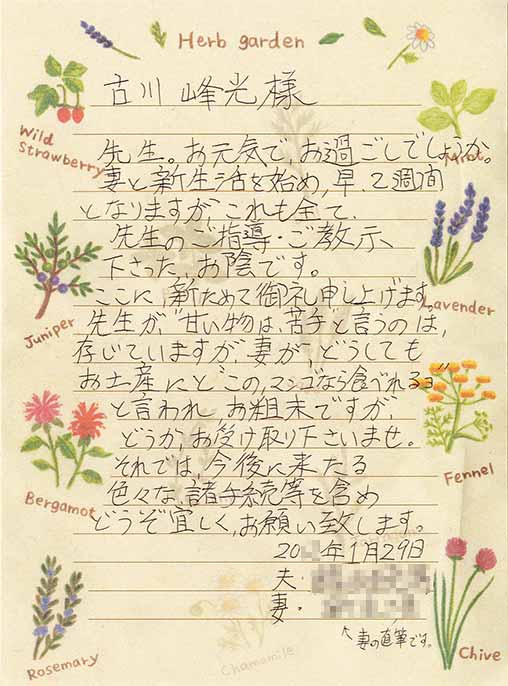 Herb garden
古川 峰光様
Wild
Strawberry
先生。お元気で、お過ごしでしょうか。
妻と新生活を始め、早、2週間
となりますが、これも全て、
先生のご指導・ご教示
下さった、お陰です。
Lavender
ここに、新ためて御礼申し上げます。
Juniper
先生が、"甘い物は、苦手と言うのは、
存じていますが、妻が、どうしても
お土産にと"この、マンゴなら食べれるヨ"
と言われ お粗末ですが、
どうか、お受け取り下さいませ。
Fennel
それでは、今後に来たる
Bergamot
色々な、諸手続等を含め
どうぞ宜しく、お願い致します。
年1月29日
夫・
妻・
↖妻の直筆です。
Rosemary
Chamomile
Chive